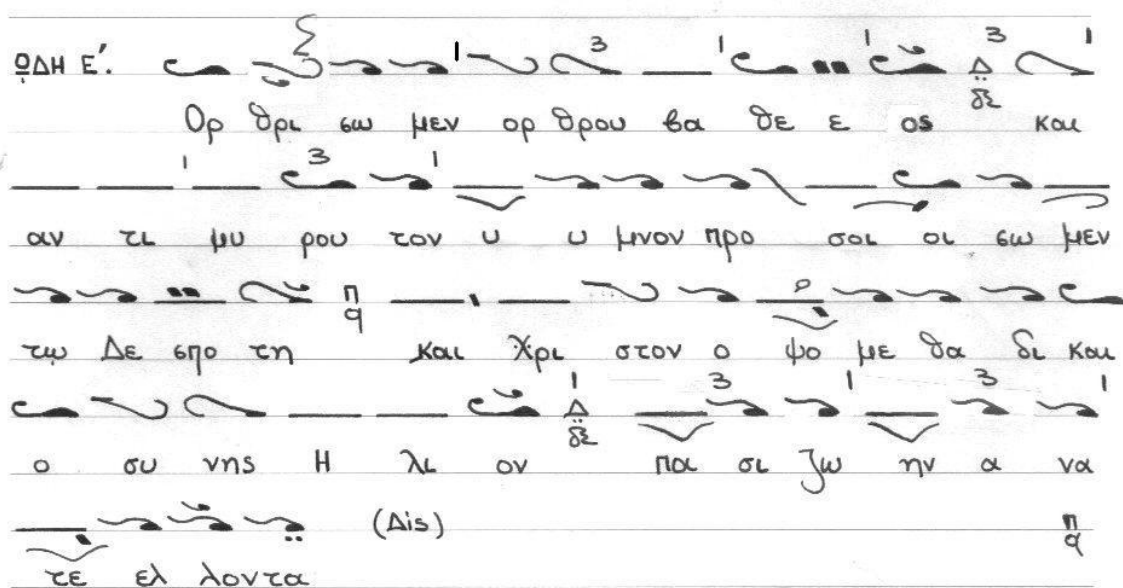 ΩΔΗ Ε΄. 3 1 1 3 1
Ορ θρι σω μεν ορ θρου βα θε ε ος Δ δι και
1 3 1
αν τι μυ ρου τον υ υ μνον προ σοι οι σω μεν
τῳ Δε σπο τη π q και Χρι στον ο ψο με θα δι και
1 3 1 3 1
ο συ νης Η λι ον Δ δι πα σι ζω ην α να
(Δίς) π q
τε ελ λον τα